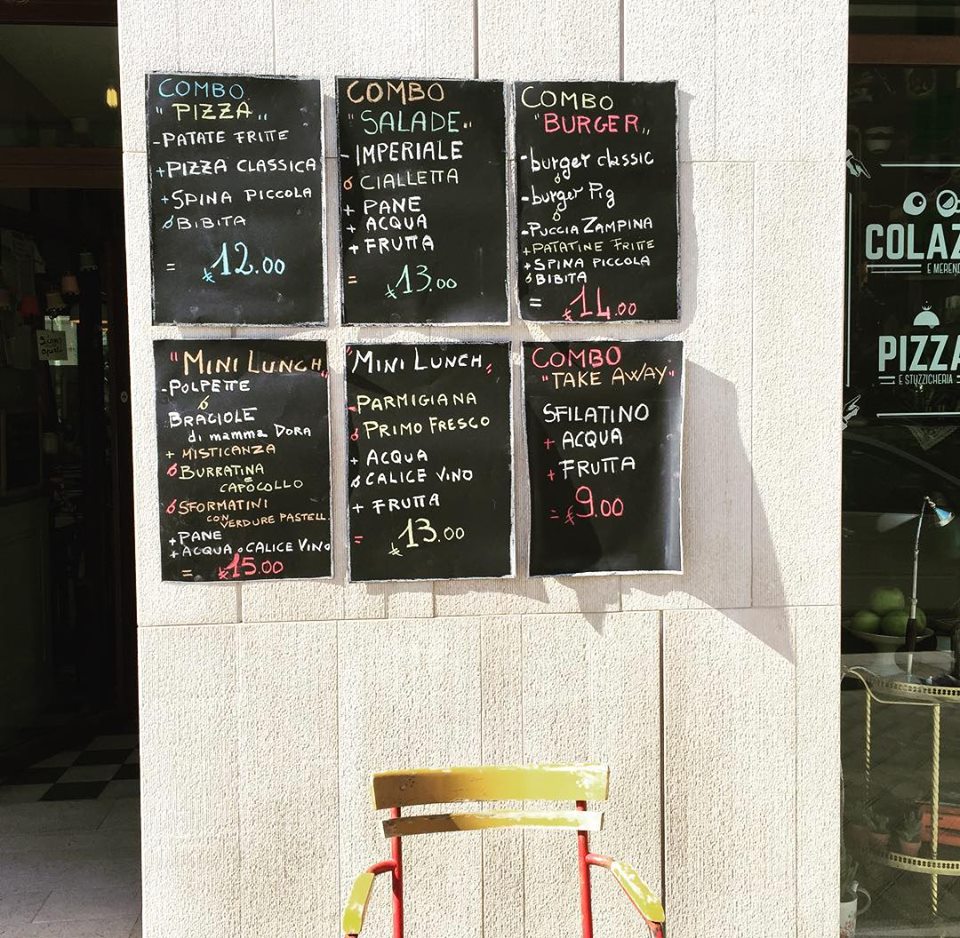 COMBO
"PIZZA"
- PATATE FRITTE
+ PIZZA CLASSICA
+ SPINA PICCOLA
ó BIBITA
= €12.00
COMBO
"SALADE"
- IMPERIALE
ó CIALLETTA
+ PANE
+ ACQUA
+ FRUTTA
= €13.00
COMBO
"BURGER"
- burger classic
ó
- burger Pig
ó
- PUCCIA ZAMPINA
+ PATATINE FRITTE
+ SPINA PICCOLA
ó BIBITA
= €14.00
"MINI LUNCH"
- POLPETTE
ó
BRACIOLE
di mamma DORA
+ MISTICANZA
ó BURRATINA
e CAPOCOLLO
ó SFORMATINI
CON VERDURE PASTELL.
+ PANE
+ ACQUA o CALICE VINO
= €15.00
"MINI LUNCH"
- PARMIGIANA
ó PRIMO FRESCO
+ ACQUA
ó CALICE VINO
+ FRUTTA
= €13.00
COMBO
"TAKE AWAY"
SFILATINO
+ ACQUA
+ FRUTTA
= €9.00
COLAZ
E MEREND
PIZZA
E STUZZICHERIA